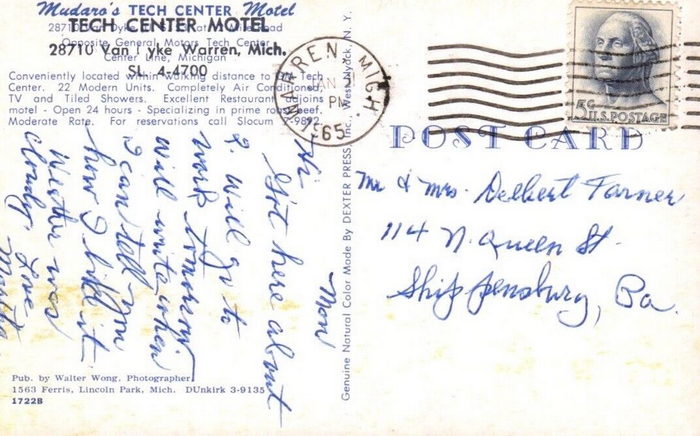 Mudaro's TECH CENTER Motel
TECH CENTER MOTEL
28710 Van Dyke Warren, Mich.
Opposite General Motors Tech Center
Center Line, Michigan
SL. 4-4700
Conveniently located within walking distance to the Tech
Center. 22 Modern Units. Completely Air Conditioned,
TV and Tiled Showers. Excellent Restaurant adjoins
motel - Open 24 hours - Specializing in prime roast beef.
Moderate Rate. For reservations call Slocum 7-9892
Mon
Hi
Got here about
2. Will go to
work tomorrow
will write when
I can tell you
how I like it.
Weather was
cloudy. Love
Pub. by Walter Wong, Photographer
1563 Ferris, Lincoln Park, Mich. DUnkirk 3-9135
1722B
Genuine Natural Color Made By DEXTER PRESS, Inc., West Nyack, N. Y.
WARREN, MICH.
PM
1965
5¢
U.S. POSTAGE
POST CARD
Mr & Mrs. Delbert Farner
114 N. Queen St.
Shippensburg, Pa.